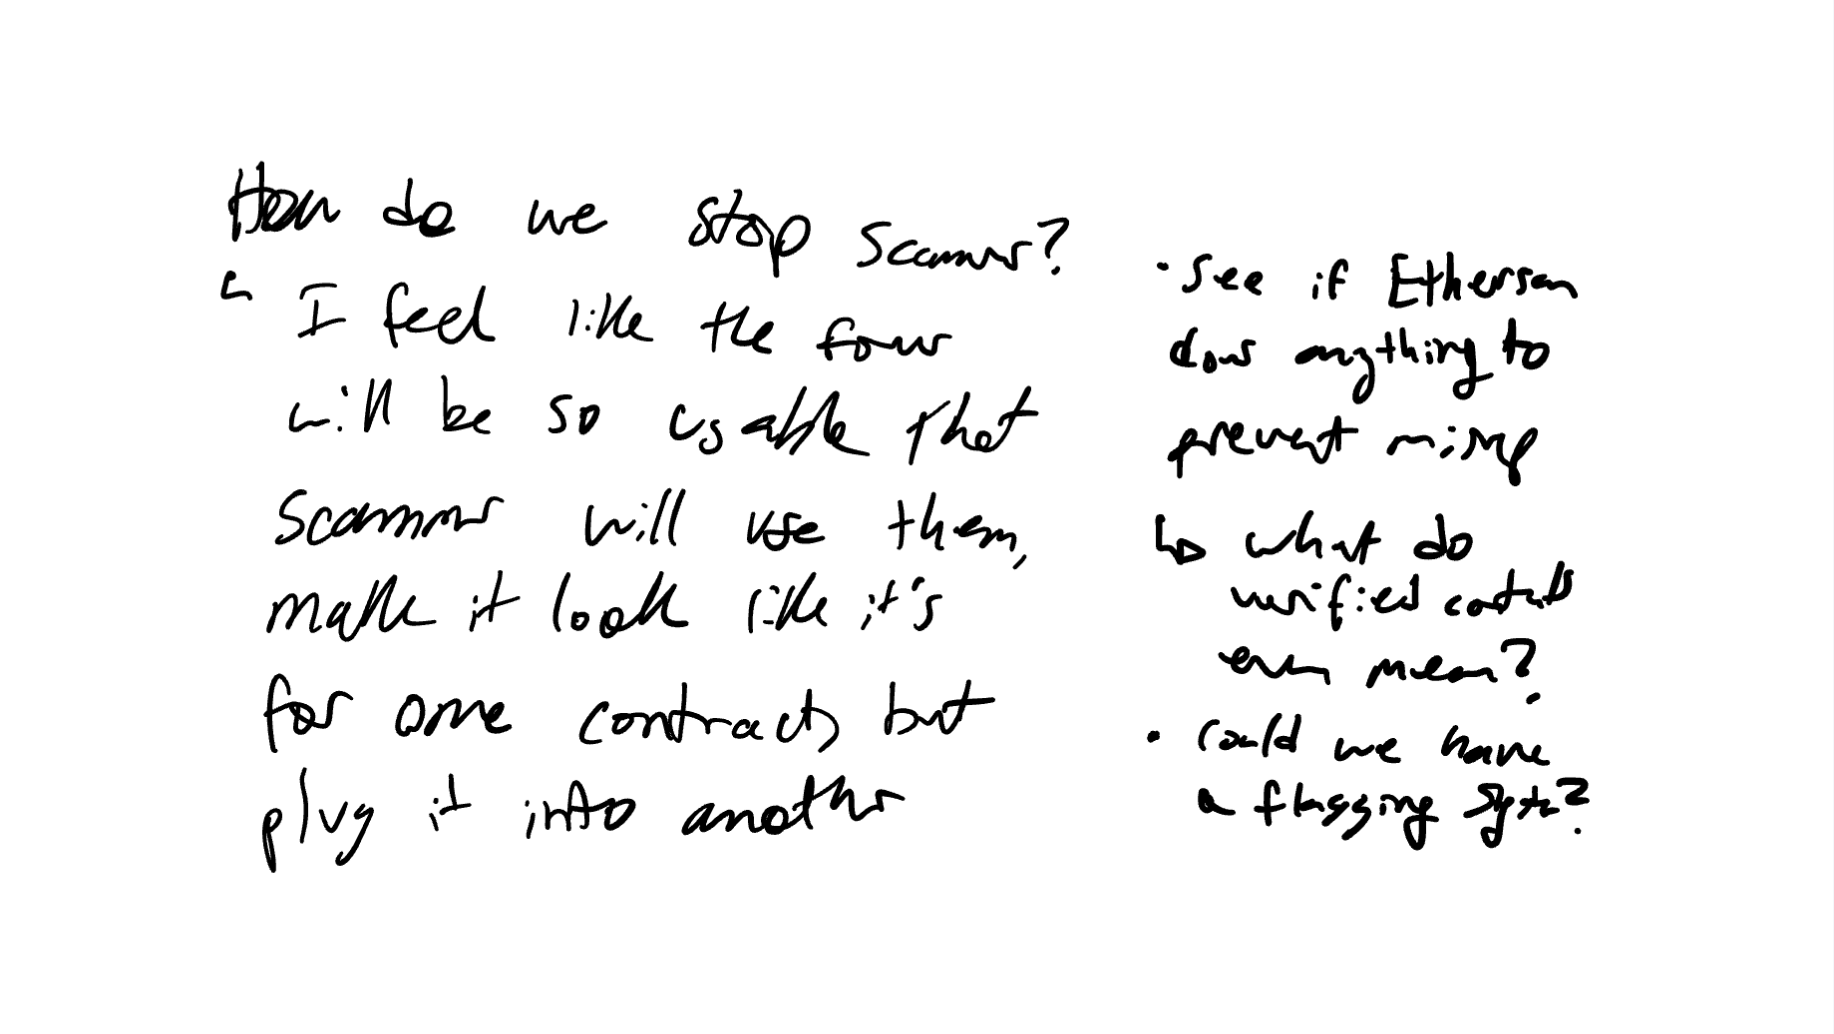 How do we stop scammers?
I feel like the forms
will be so usable that
scammers will use them,
make it look like it's
for one contract, but
plug it into another
• see if Etherscan
does anything to
prevent misuse
↳ what do
verified contracts
even mean?
• could we have
a flagging system?